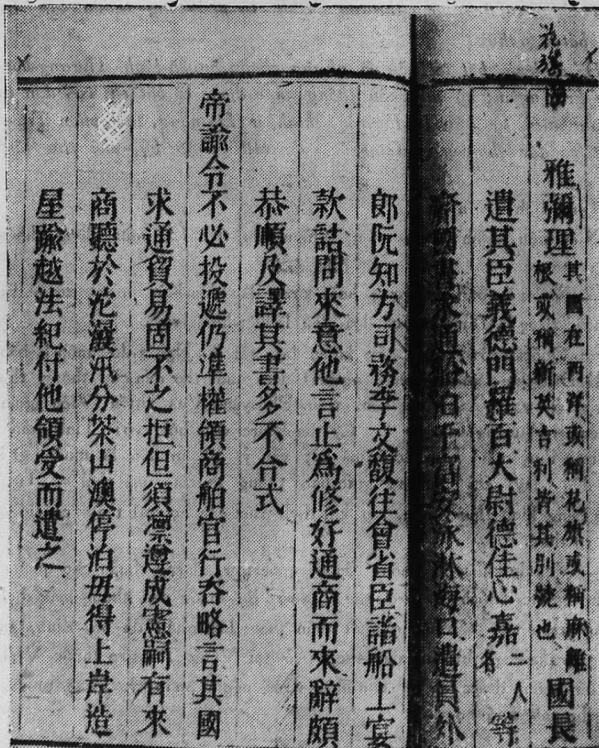 花旗
雅彌理其國在西洋或稱花旗或稱麻離
根或稱新英吉利皆其別號也國長
遣其臣義德門羅百大尉德佳心嘉二人
名等
國書求通船泊于富安淋海口遣員外
郎阮知方司務李文馥往會省臣詣船上宴
款詰問來意他言止爲修好通商而來辭頗
恭順及譯其書多不合式
帝諭令不必投遞仍準權領商舶官行咨略言其國
求通貿易固不之拒但須凛遵成憲嗣有來
商聽於沱㶞汛分茶山澳停泊毋得上岸造
屋踰越法紀付他領受而遣之